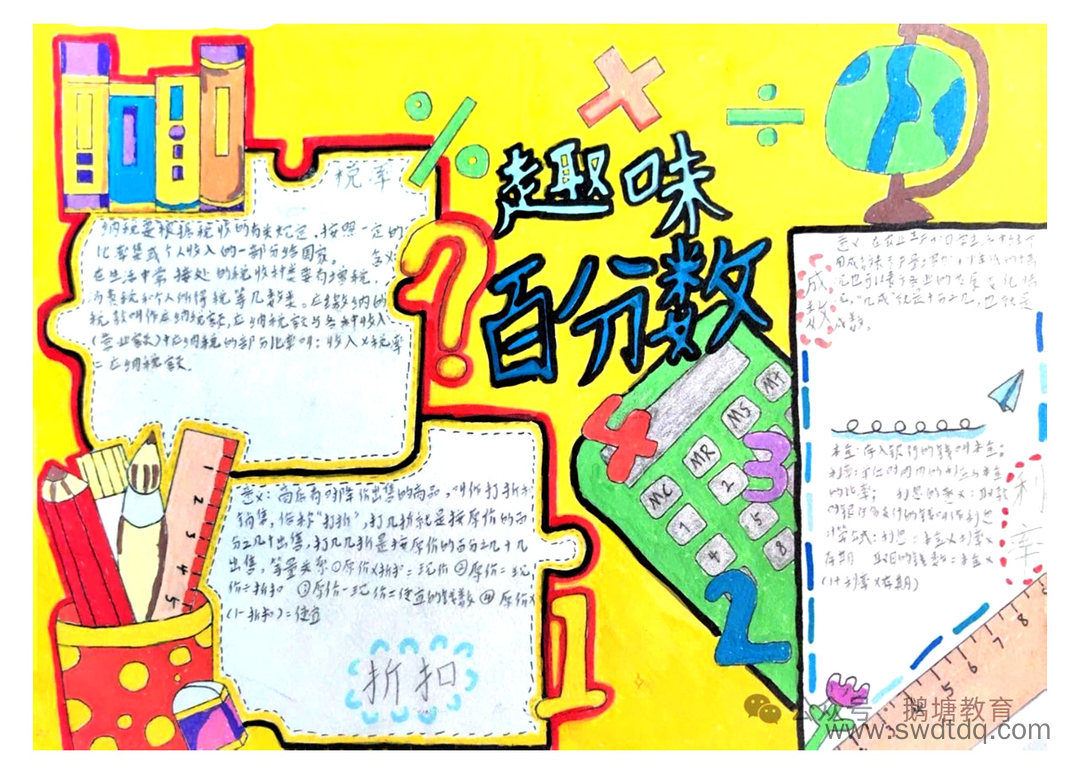 趣味
百分数
税率
纳税是根据税收的有关规定,按照一定的
比率集或个人收入的一部分给国家。
在生活中常接处的税收种类要有增税,
税款叫作应纳税额,应纳税额与各种收入
(营业额)中应纳税的部分比率叫:收入×税率
=应纳税额.
意义:商店有时降价出售的商品,叫作打折扣
销售,俗称"打折",打几折就是按原价的百
分之几十出售,打几几折是按原价的百分之几十几
出售,等量关系①原价×折扣=现价②原价=现
价÷折扣 ③原价-现价=便宜的钱数④原价×
(1-折扣)=便宜
折扣
成数
成数。
本金:存入银行的钱叫本金;
的比率; 利息的意义:取款
时银行多支付的钱叫作利息
计算公式:利息=本金×利率×
存期 取回的钱数=本金×
(1+利率×存期)
利率
% × ÷
?
1 2 3 4 5
MC MR MS M+
1 2
4 5
8
4
3
2
1
5 6 7 8
公众号 · 鹅塘教育
www.swdtdq.com